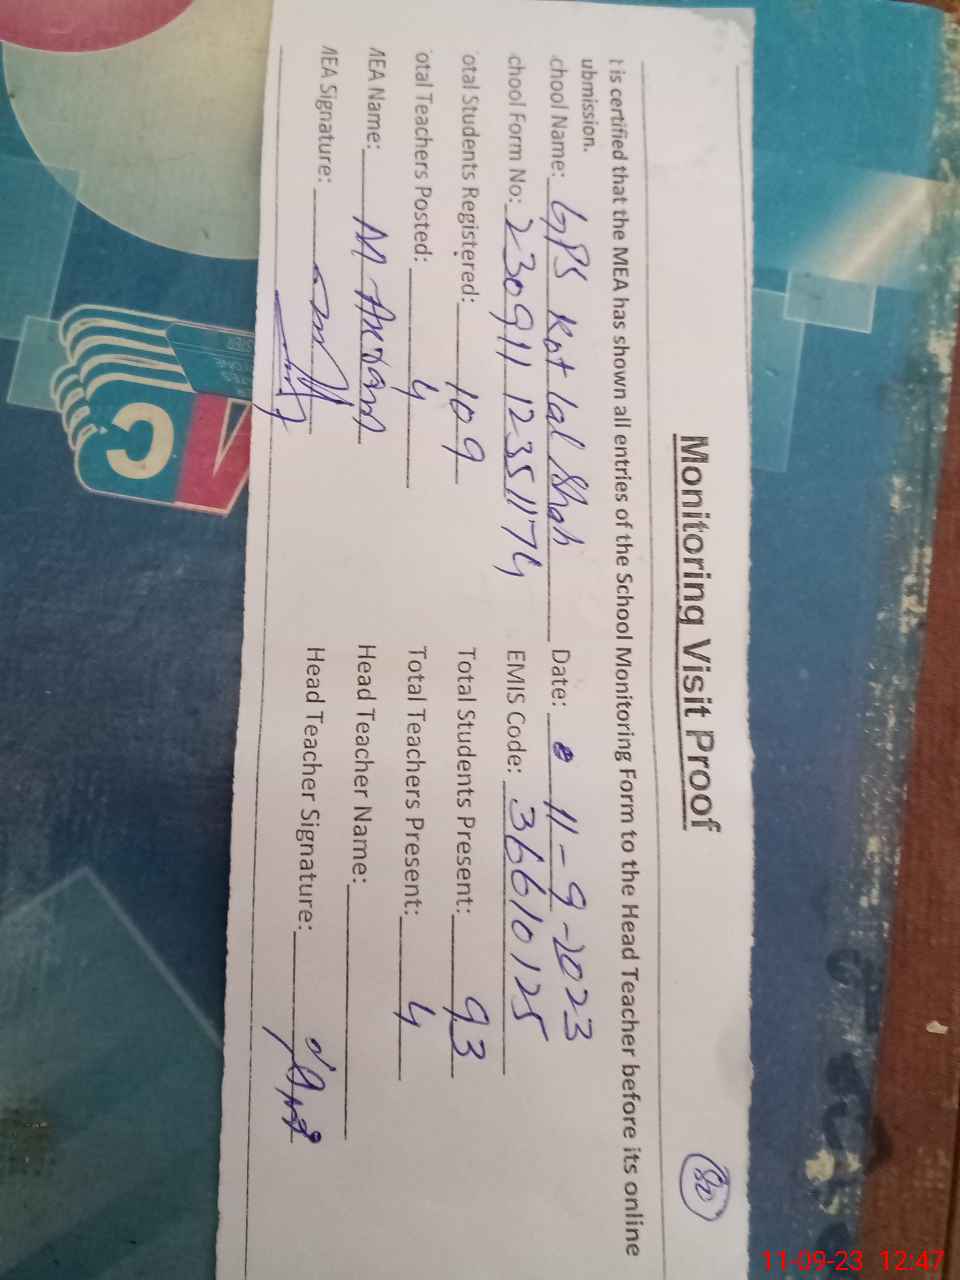 80
Monitoring Visit Proof
t is certified that the MEA has shown all entries of the School Monitoring Form to the Head Teacher before its online
ubmission.
chool Name: GPS Kot lal Shah Date: 11-9-2023
chool Form No: 230911 12351174 EMIS Code: 36610125
otal Students Registered: 109 Total Students Present: 93
otal Teachers Posted: 4 Total Teachers Present: 4
MEA Name: Head Teacher Name:
MEA Signature: Head Teacher Signature:
C
11-09-23 12:47